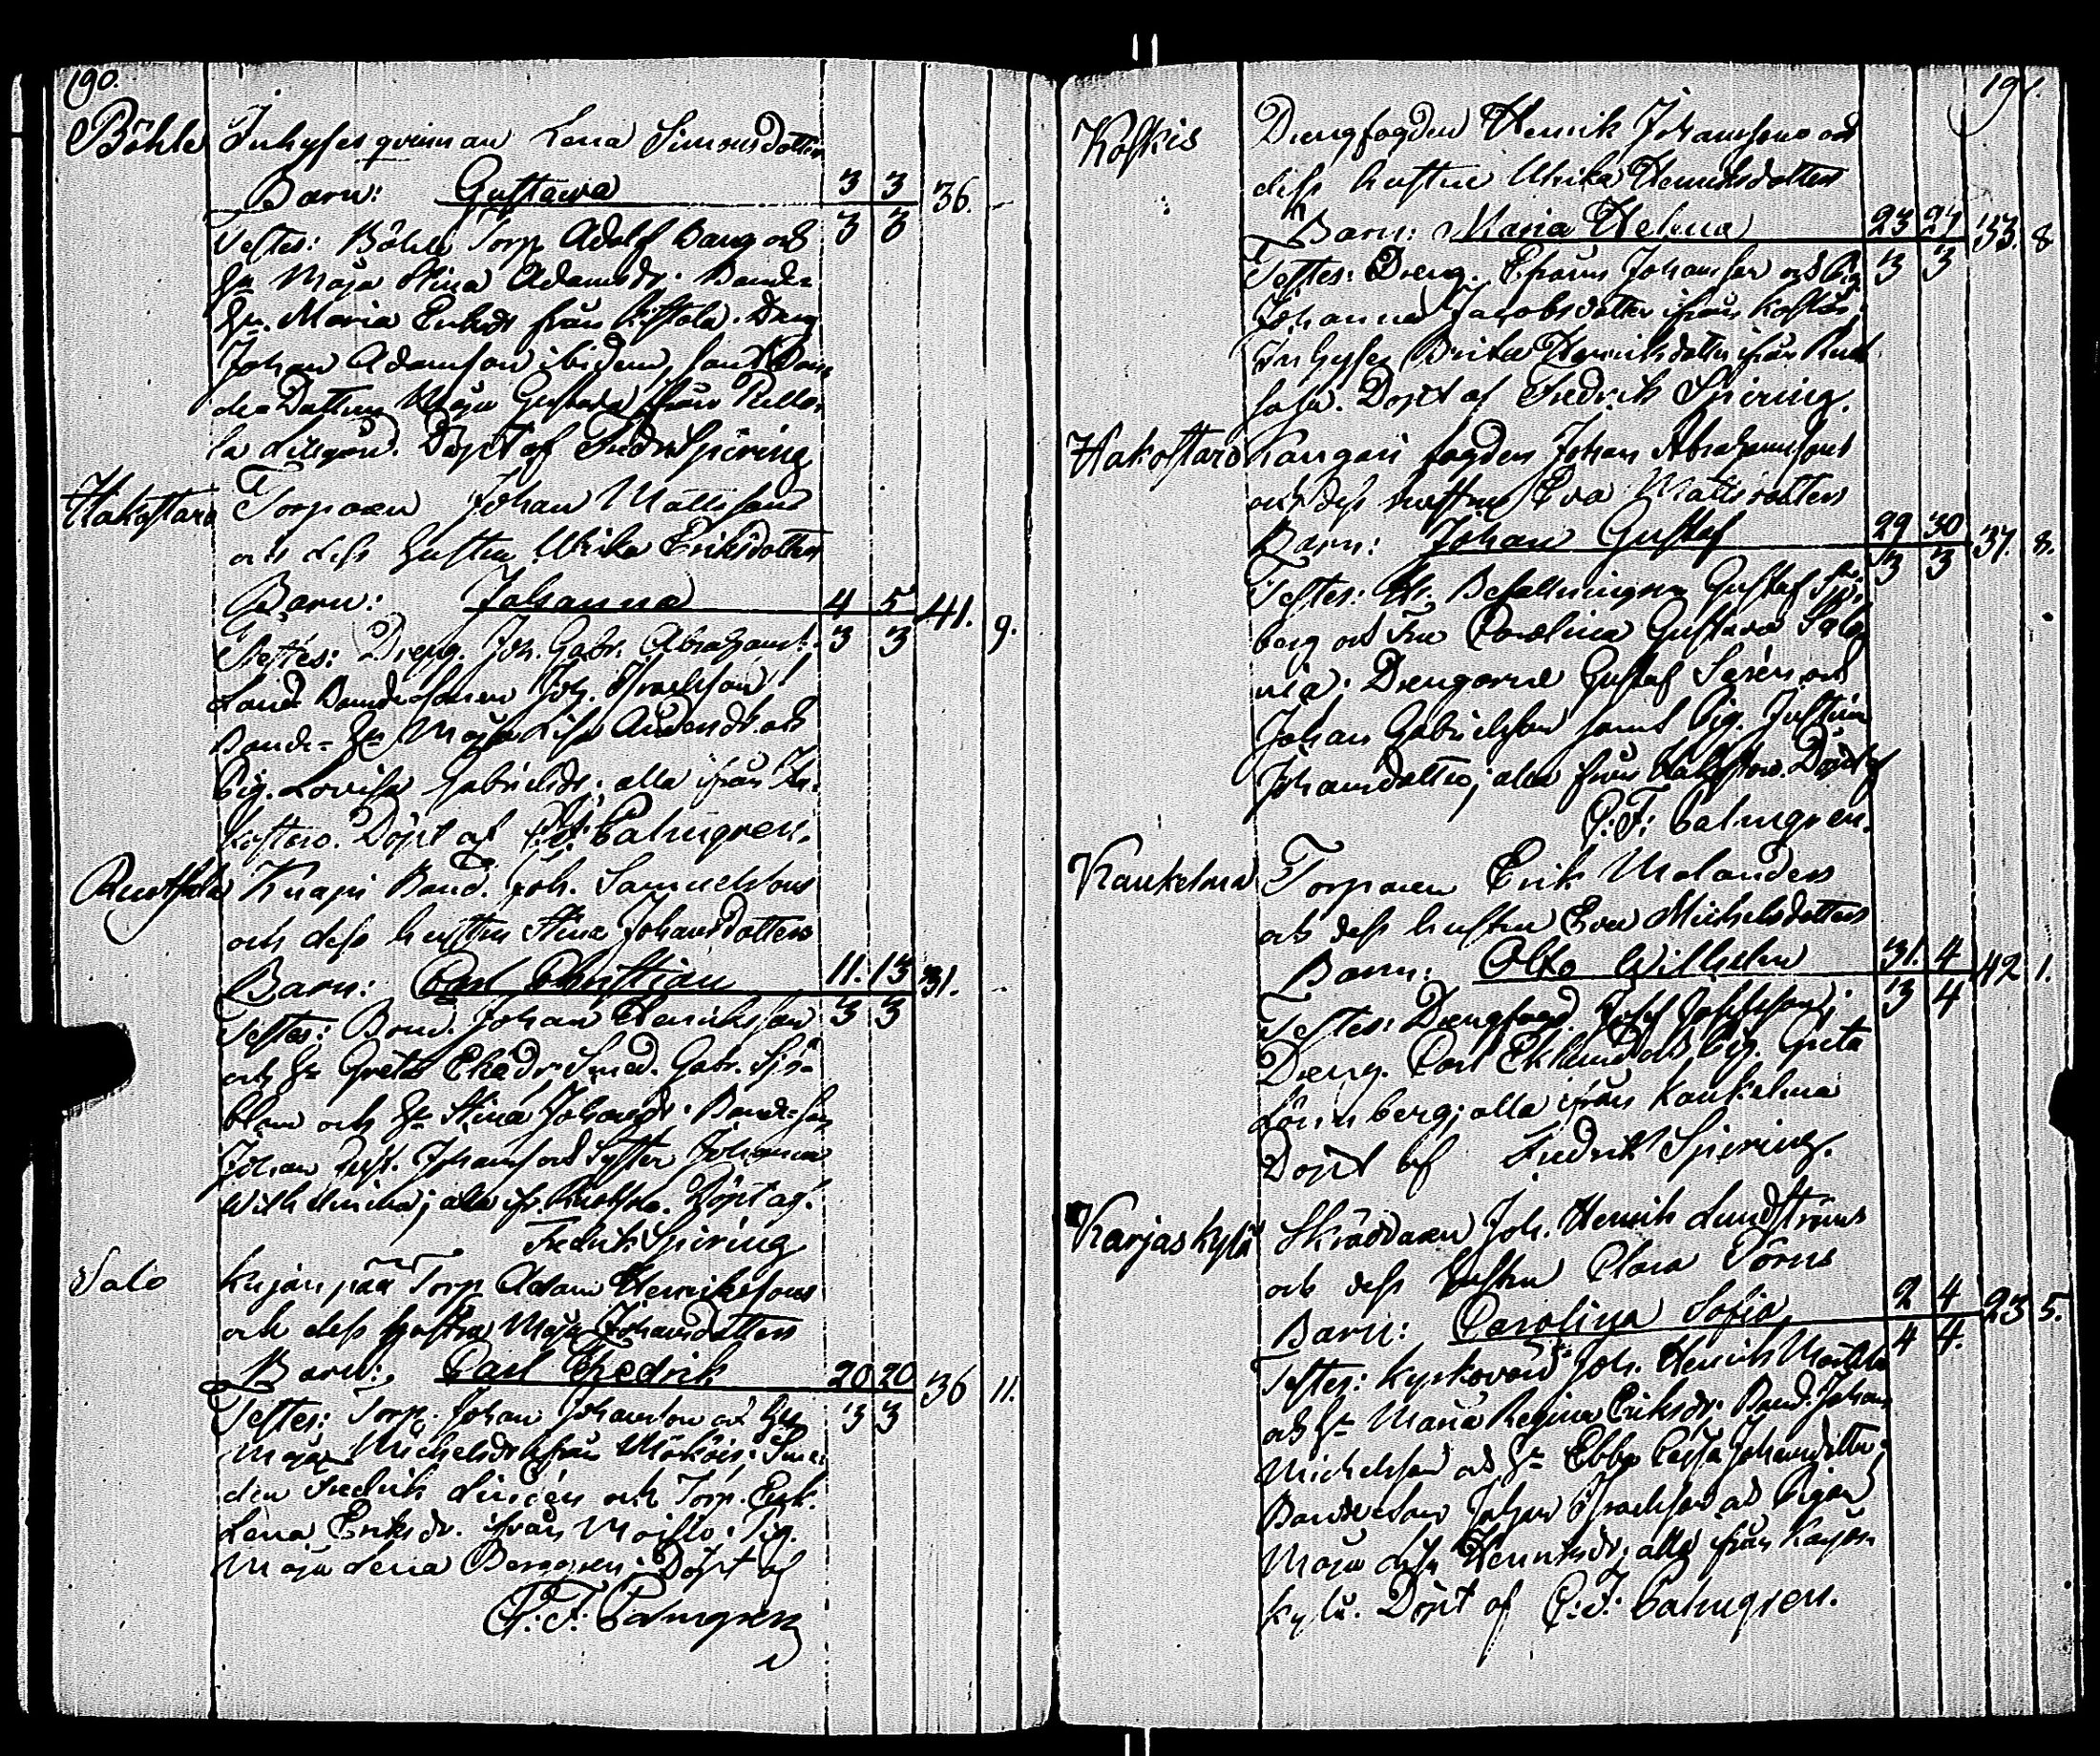 190.
Böhle Inhyses qvinnan Lena Simonsdotters
Barn: Gustava 3 3 36.
Testes: Böhle Torp. Adolf Bang och 3 3
Hu Maja Stina Adamsdr. Bonde-
Hu. Maria Eriksdr från Dreng
Johan Adamsson ibidem, samt Bon-
de-Dottren Maja Gustava från Pello-
la Lillgård. Döpt af Fredr Spiering
Hakostaro Torparen Johan Mattssons
och dess hustru Ulrika Eriksdotters
Barn: Johanna 4 5 41. 9.
Testes: Dreng. Joh. Gabr. Abrahamss. 3 3
Land Bondesonen Joh. Israelsson
Bonde-Hu Maja Lisa och
Pig. Lovisa Gabrielsdr; alla ifrån Ha-
kostaro. Döpt af C. F. Palmgren.
Ruotsala Knapi Bond. Joh. Samuelssons
och dess hustru Stina Johansdotters
Barn: Carl Christian 11. 13 31.
Testes: Bond. Johan Henriksson 3 3
och Hu Greta Smed. Gabr. Sjö-
blom och Hu Stina Johansdr. Bonde-son
Johan Johanss och Syster Johanna
Wilhelmina; alla ifr. Ruotsala. Döpt af
Fredrik Spiering
Salo Torp Adam Henrikssons
och dess hustru Maja Johansdotters
Barn: Carl Fredrik 20 20 36 11.
Testes: Torp. Johan Johansson och Hu 3 3
Maja Michelsdr ifrån Sme-
den Fredrik Lindén och Torp. Enk.
Lena Eriksdr. ifrån Moisio. Pig.
Maja Lena Berggren. Döpt af
C. F. Palmgren
191.
Koskis Drengfogden Henrik Johanssons och
dess hustru Ulrika Henriksdotters
Barn: Maria Helena 23 24 33. 8
Testes: Dreng. Efraim Johansson och Pig 3 3
Johanna Jacobsdotter ifrån Koskis.
Inhyses Brita Henriksdotter ifrån
Döpt af Fredrik Spiering.
Hakostaro Kangari fogden Johan Abrahamssons
och dess hustru Eva Mattsdotters
Barn: Johan Gustaf 29 30 37. 8.
Testes: Hr. Befallningsm Gustaf 3 3
berg och Fru Carolina Gustava
Drengarne Gustaf Serén och
Johan Gabrielsson samt Pig. Justina
Johansdotter; alla från Hakostaro. Döpt af
C. F. Palmgren.
Kaukelma Torparen Erik Melanders
och dess hustru Eva Michelsdotters
Barn: Otto Wilhelm 31. 4 42. 1.
Testes: Drengfogd. Josef Josefsson; 3 4
Dreng. Carl Eklund och Pig. Greta
Lönnberg; alla ifrån Kaukelma
Döpt af Fredrik Spiering.
Karjaskylä Skräddaren Joh. Henrik Lundströms
och dess hustru Clara Törns
Barn: Carolina Sofia 2 4 23 5.
Testes: Kyrkovärd Joh. Henrik 4 4.
och Hu Maria Regina Eriksdr. Bond. Johan
Michelsson och Hu Ebba Cajsa Johansdotter;
Bondeson Johan Israelsson och Pigan
Maja Lisa Henriksdr; alla ifrån Karjas-
kylä. Döpt af C. F. Palmgren.